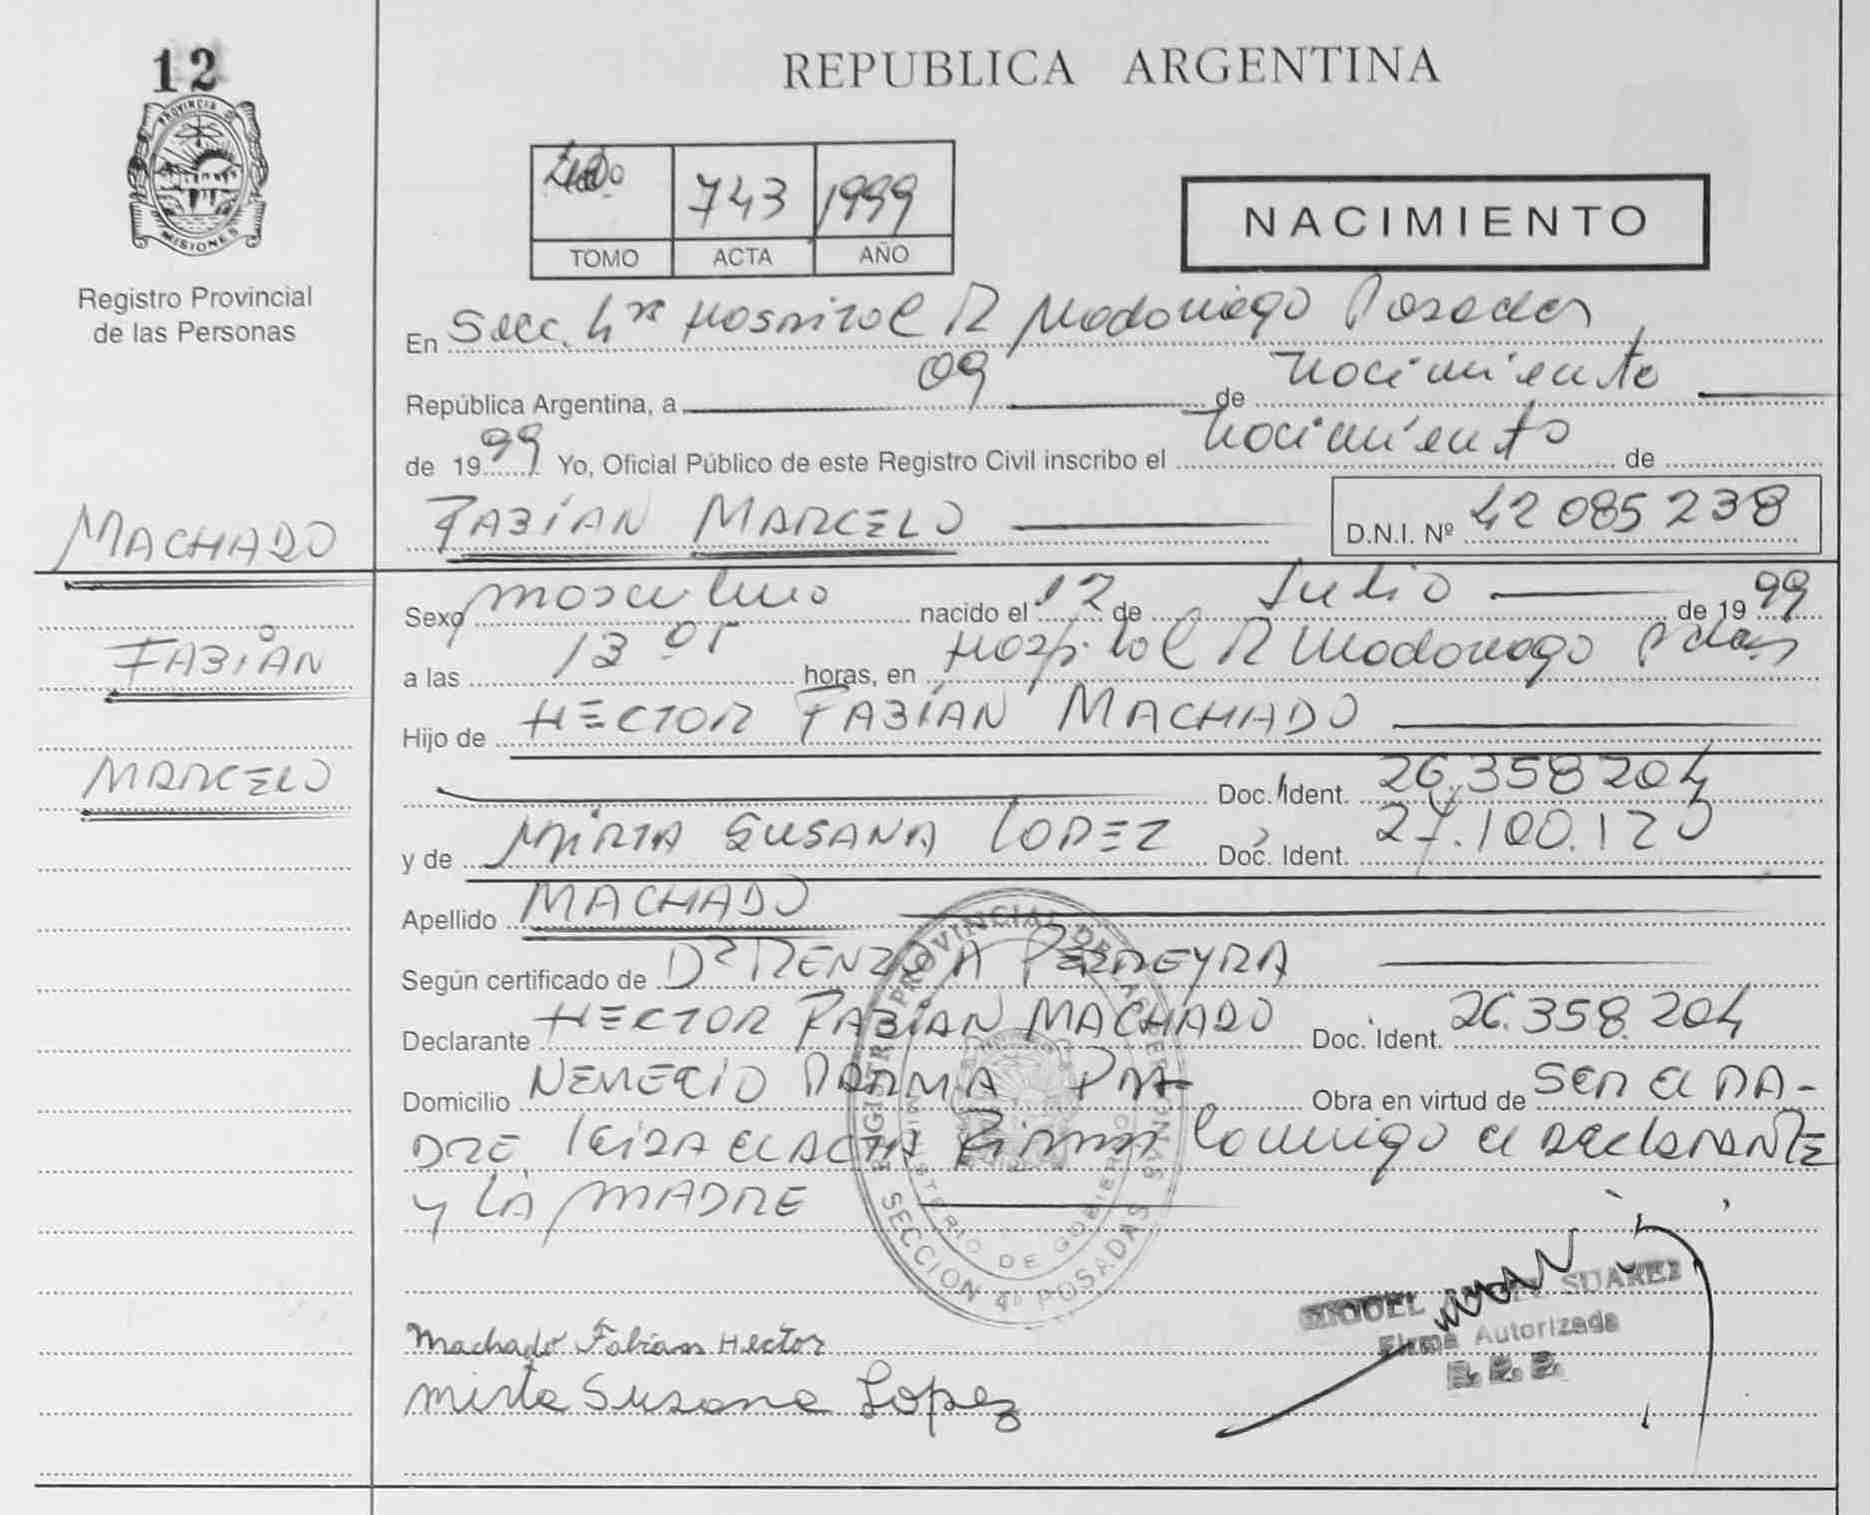 12
PROVINCIA
MISIONES
Registro Provincial
de las Personas
REPUBLICA ARGENTINA
743 1999
TOMO ACTA AÑO
NACIMIENTO
En Secc. 4ta Hospital R Madariaga Posadas
República Argentina, a 09 de nacimiento
de 1999 Yo, Oficial Público de este Registro Civil inscribo el nacimiento de
MACHADO
FABIÁN MARCELO D.N.I. Nº 42 085 238
Sexo masculino nacido el 12 de Julio de 1999
FABIÁN
a las 13 05 horas, en Hospital R Madariaga Pdas
Hijo de HECTOR FABIÁN MACHADO
MARCELO
Doc. Ident. 26.358 204
y de MIRTA SUSANA LOPEZ Doc. Ident. 27.100.120
Apellido MACHADO
Según certificado de Dr RENZO A PERREYRA
Declarante HECTOR FABIÁN MACHADO Doc. Ident. 26.358.204
Domicilio NEMECIO PARMA Obra en virtud de SER El PA-
DRE. lEIDA El ACTA Firman Conmigo el DEClARANTE
y LA MADRE
REGISTRO PROVINCIAL DE LAS PERSONAS
MINISTERIO DE GOBIERNO
SECCION 4ª POSADAS
MIGUEL ANGEL SUAREZ
Firma Autorizada
Machado Fabian Hector
mirta Susana Lopez